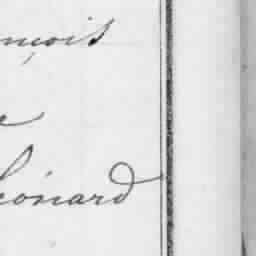 nçois
e
Léonard